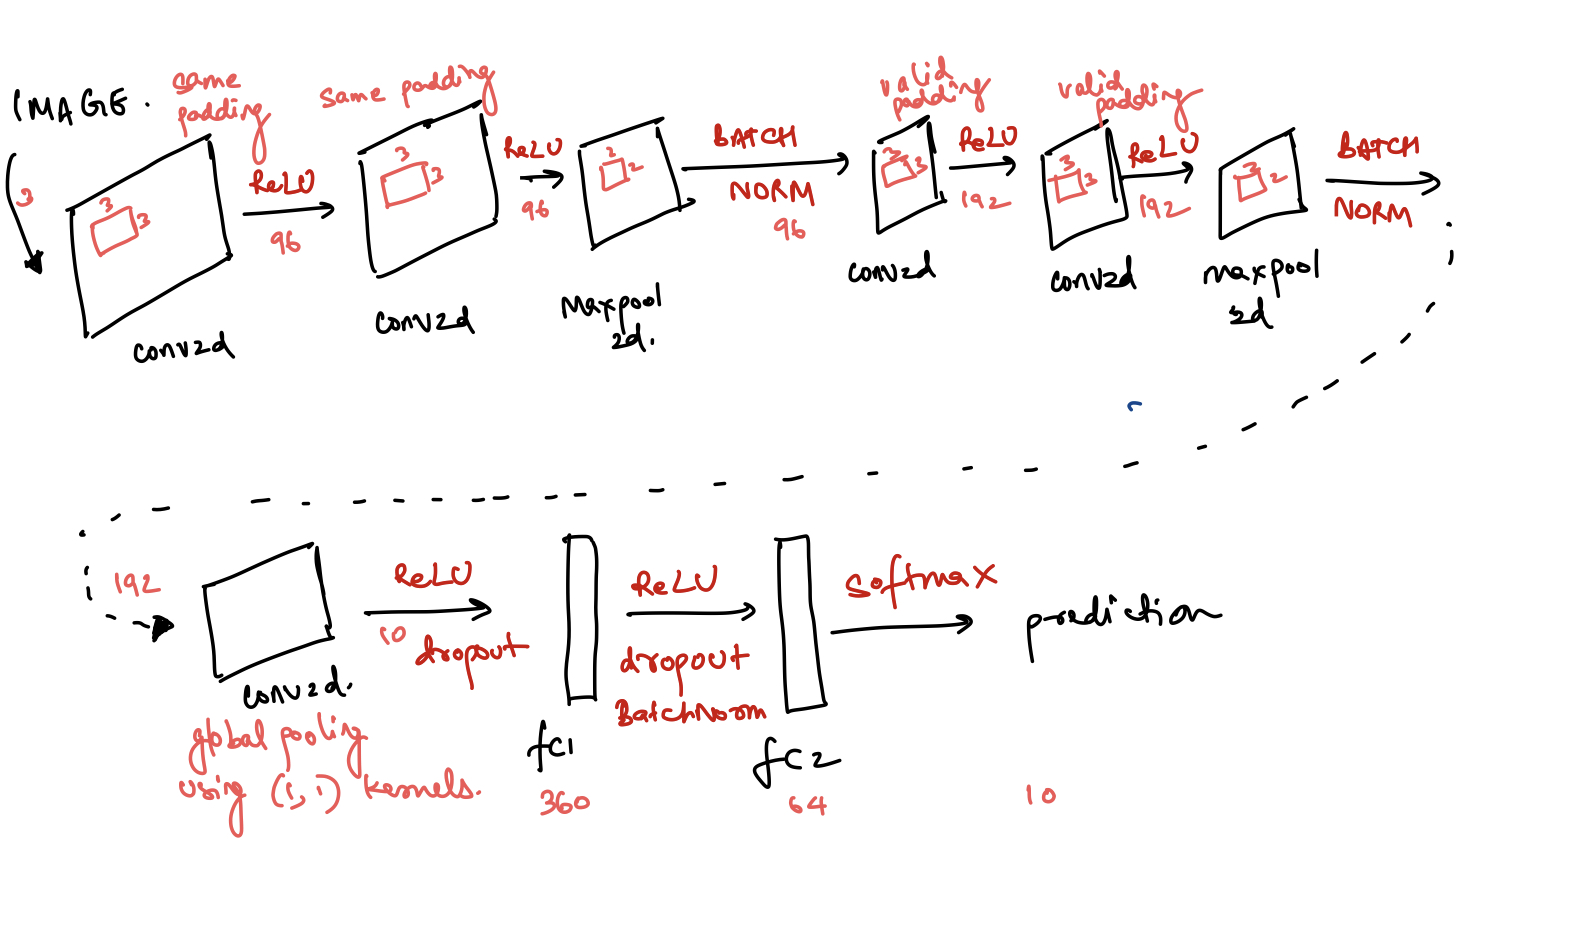 IMAGE.
3
same
padding
3
3
ReLU
96
conv2d
same padding
3
3
ReLU
96
conv2d
2
2
Maxpool
2d.
BATCH
NORM
96
valid
padding
3
3
ReLU
192
conv2d
valid
padding
3
3
ReLU
192
conv2d
2
maxpool
2d
BATCH
NORM
192
conv2d.
global pooling
using (1,1) kernels.
ReLU
10
dropout
fC1
360
ReLU
dropout
BatchNorm
fC2
64
Softmax
prediction
10